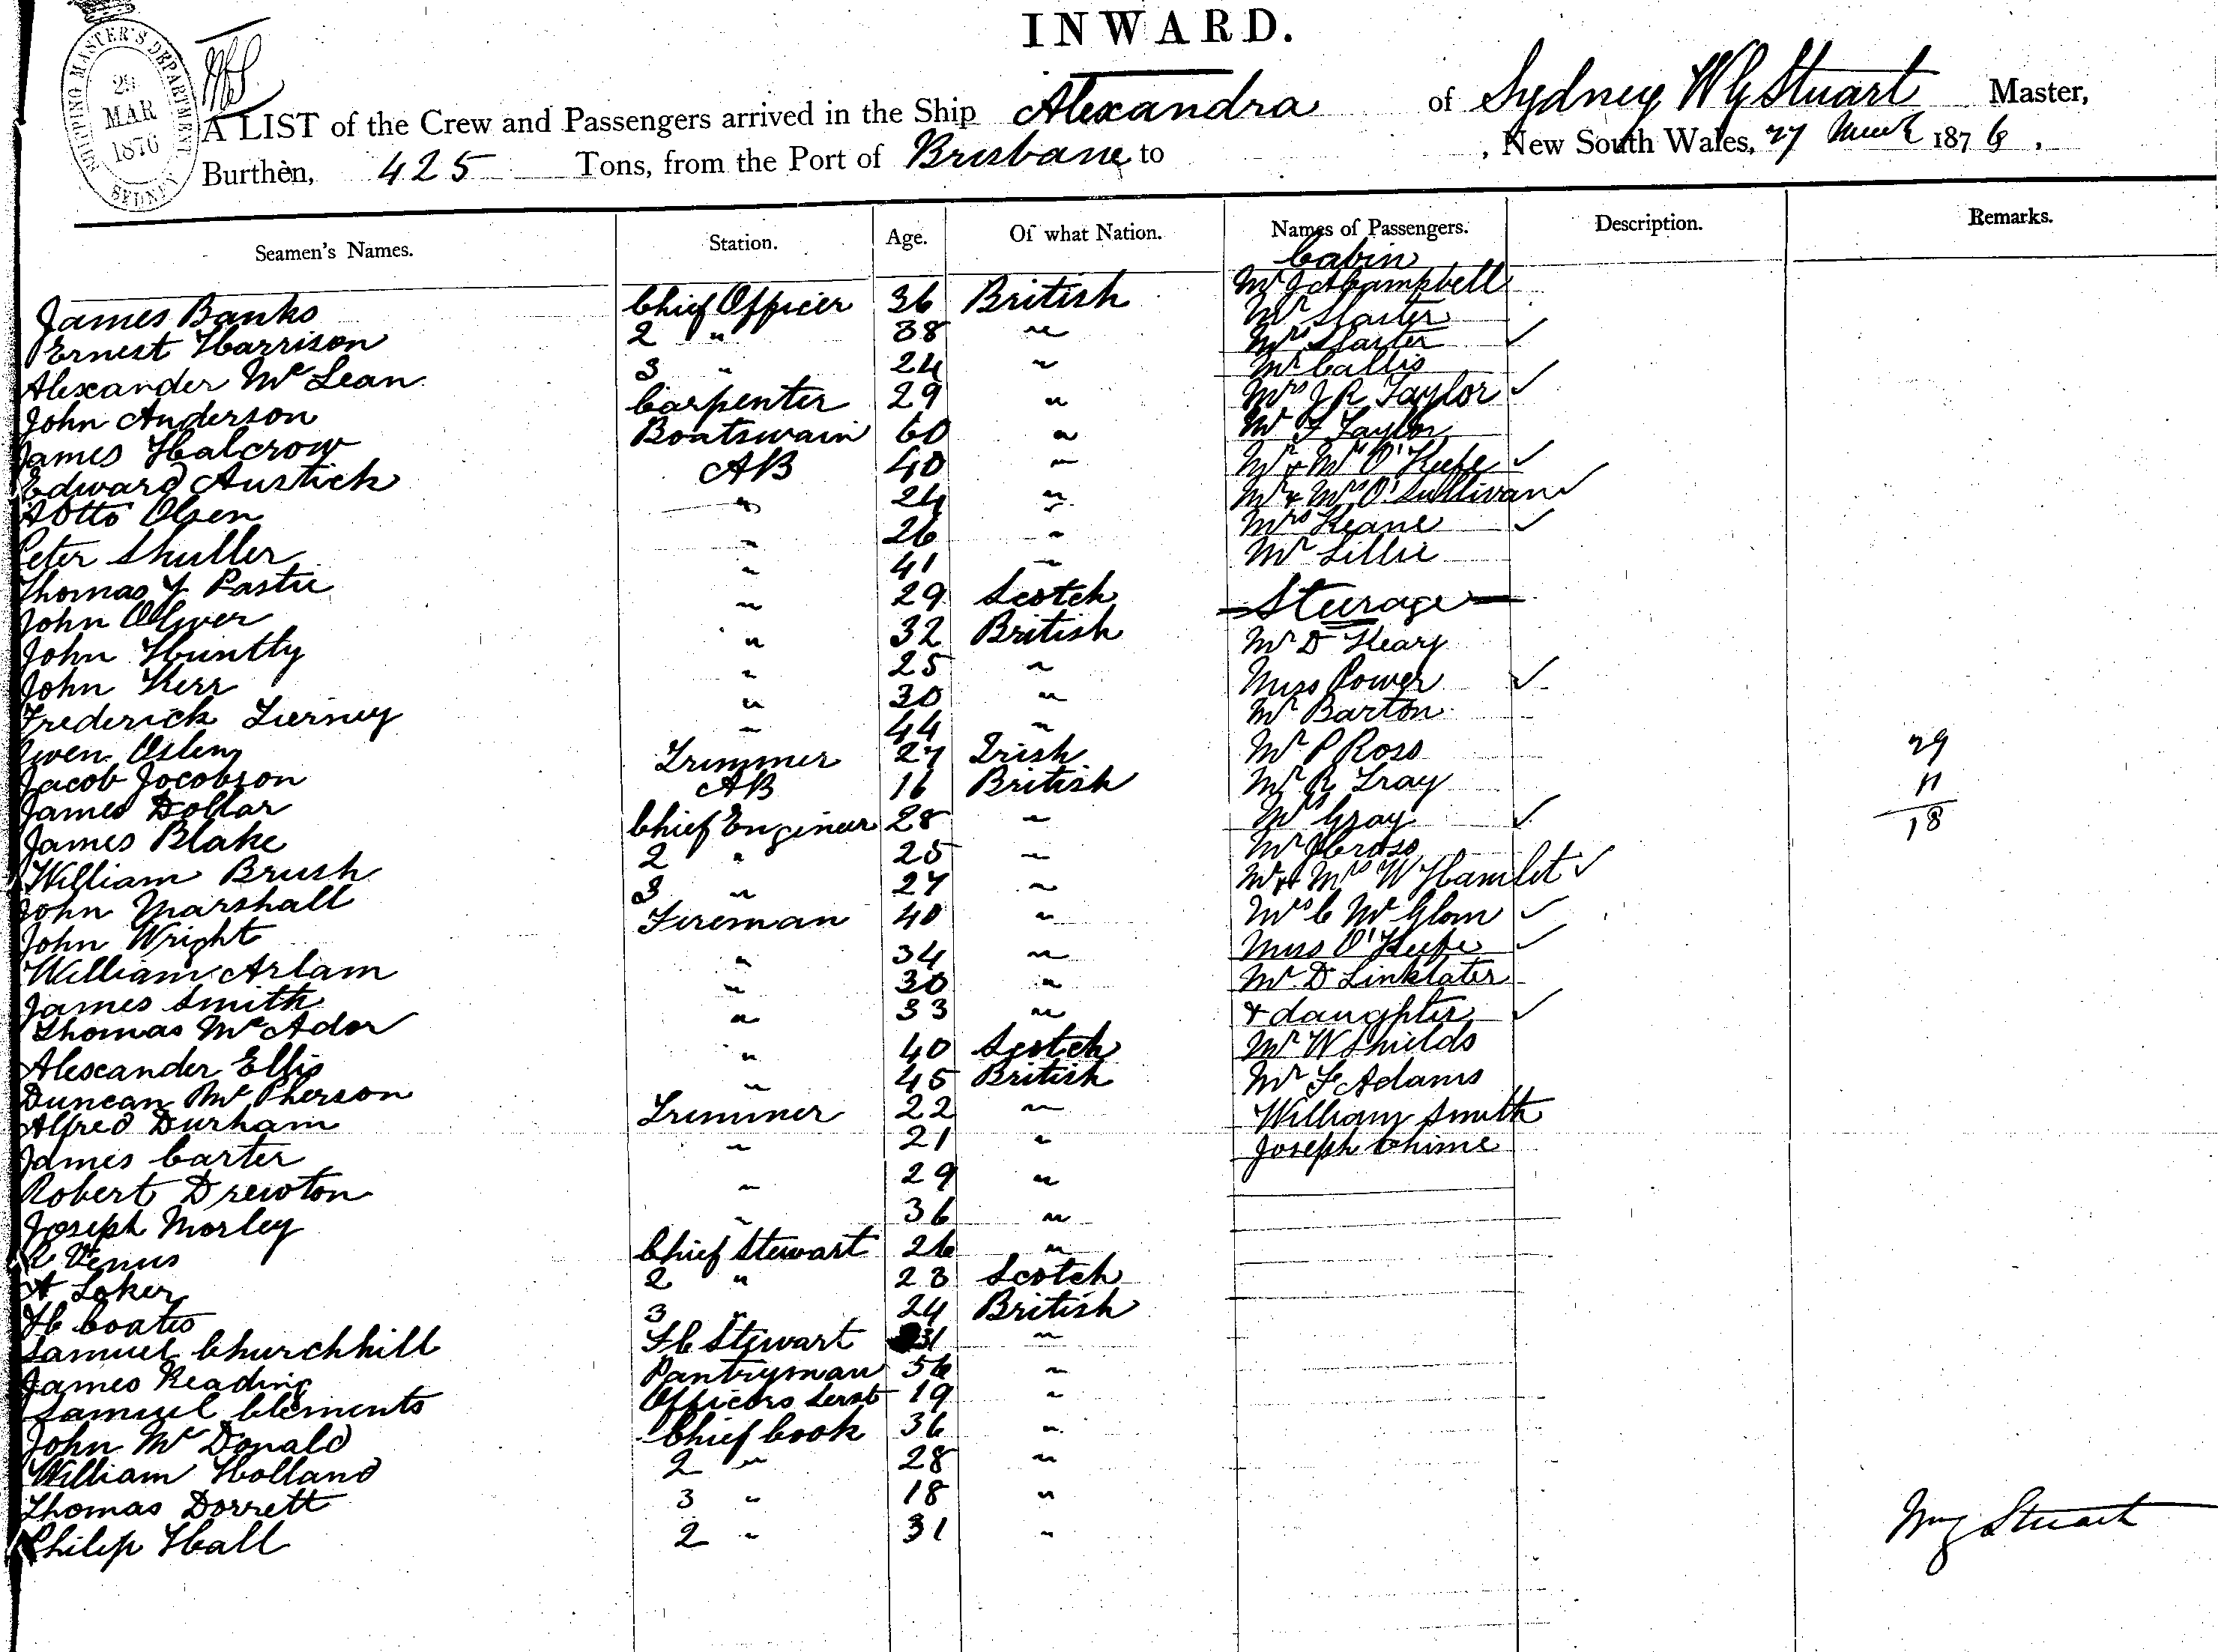 INWARD.
SHIPPING MASTER'S DEPARTMENT SYDNEY
29
MAR
1876
A LIST of the Crew and Passengers arrived in the Ship Alexandra of Sydney W G Stuart Master,
Burthen, 425 Tons, from the Port of Brisbane to , New South Wales, 27 March 1876,
Seamen's Names. Station. Age. Of what Nation. Names of Passengers. Description. Remarks.
Cabin
James Banks Chief Officer 36 British Mr J A Campbell
Ernest Harrison 2 " 38 " Mr Slarter
Alexander McLean 3 " 24 " Mrs Slarter ✓
John Anderson Carpenter 29 " Mr Callis
James Halcrow Boatswain 60 " Mrs J R Taylor ✓
Edward Austich AB 40 " Mr F Taylor
Otto Olsen " 24 " Mr & Mrs O'Keefe ✓
Peter Shuller " 26 " Mr & Mrs O'Sullivan ✓
Thomas Y Pastie " 41 " Mrs Keane ✓
John Oliver " 29 Scotch Mr Lillie
John Huntly " 32 British Steerage
John Kerr " 25 " Mr D Keary
Frederick Tierney " 30 " Miss Power ✓
Owen " 44 " Mr Barton
Jacob Jocobson Trimmer 27 Irish Mr P Ross 29
James Dollar AB 16 British Mr R Gray 11
James Blake Chief Engineer 28 " Mrs Gray ✓ 18
William Brush 2 " 25 " Mr
John Marshall 3 " 27 " Mr & Mrs W Hamlet ✓
John Wright Fireman 40 " Mrs C McGlom ✓
William Arlam " 34 " Miss O'Keefe ✓
James Smith " 30 " Mr D Linklater
Thomas McAdor " 33 " & daughter ✓
Alexander Ellis " 40 Scotch Mr W Shields
Duncan McPherson " 45 British Mr F Adams
Alfred Durham Trimmer 22 " William Smith
James Carter " 21 " Joseph Chime
Robert Drewton " 29 "
Joseph Morley " 36 "
R Venus Chief Stewart 26 "
A Loker 2 " 23 Scotch
H Coates 3 " 24 British
Samuel Churchhill F C Stewart 31 "
James Reading Pantryman 56 "
Samuel Clements Officers Servt 19 "
John McDonald Chief Cook 36 "
William Holland 2 " 28 "
Thomas Dorrett 3 " 18 "
Philip Hall 2 " 31 "
Wm G Stuart